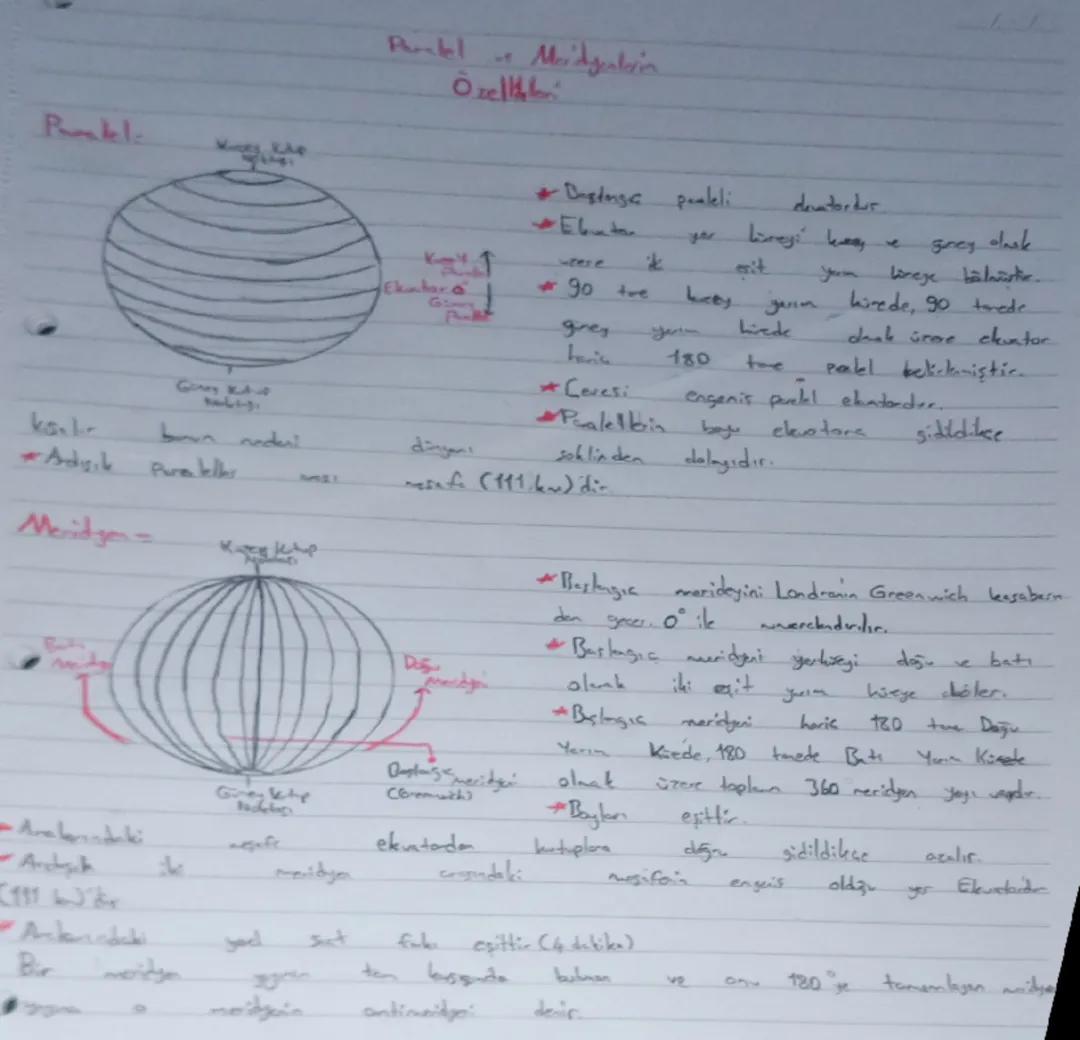 Paralel ve Meridyenlerin
Özellikleri
Paralel:
Kuzey Kutup
Noktası
Kuzey
Ekvator 0°
Güney
Güney Kutup
Noktası
* Başlangıç paraleli ekvatordur.
* Ekvator yer küreyi kuzey ve güney olmak
üzere iki eşit yarım küreye
* 90 tane kuzey yarım kürede, 90 tanede
güney yarım kürede olmak üzere ekvator
haric 180 tane paralel belirlenmiştir.
* Çevresi engeniş paralel ekvatordur.
* Paralellerin boyu ekvatora gidildikçe
kısalır bunun nedeni dünyanı şeklinden dolayıdır.
* Ardışık Paraleller arası mesafe (111 km)'dir.
Meridyen =
Kuzey Kutup
Noktası
Batı
Doğu
Meridyeni
Başlangıç meridyeni
Güney Kutup
Noktası
* Başlangıc Londranin Greenwich kasabasın
dan geçer. 0° ile
* Baslangıç meridyeni yerküreyi doğu ve batı
olarak iki eşit yarım küreye böler.
* Başlangıc meridyeni haric 180 tane Doğu
Yarım Kürede, 180 tanede Batı Yarım Kürede
olmak üzere toplam 360 meridyen yayı vardır.
* Boyları eşittir.
- Aralarındaki mesafe ekvatordan kutuplara doğru gidildikçe azalır.
- Ardışık iki meridyen arasındaki engeniş olduğu yer Ekvatordur
(111 km)'dir
- Aralarındaki yerel saat farkı eşittir (4 dakika)
Bir meridyen tam karşısında bulunan ve onu 180°'ye tamamlayan
o meridyenin antimeridyeni denir.